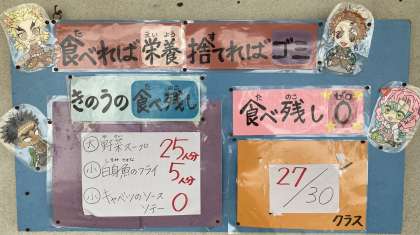 食べれば栄養捨てればゴミ
きのうの食べ残し
大 野菜スープ 25人分
小 白身魚のフライ 5人分
小 キャベツのソースソテー 0
食べ残し0
27/30
クラス